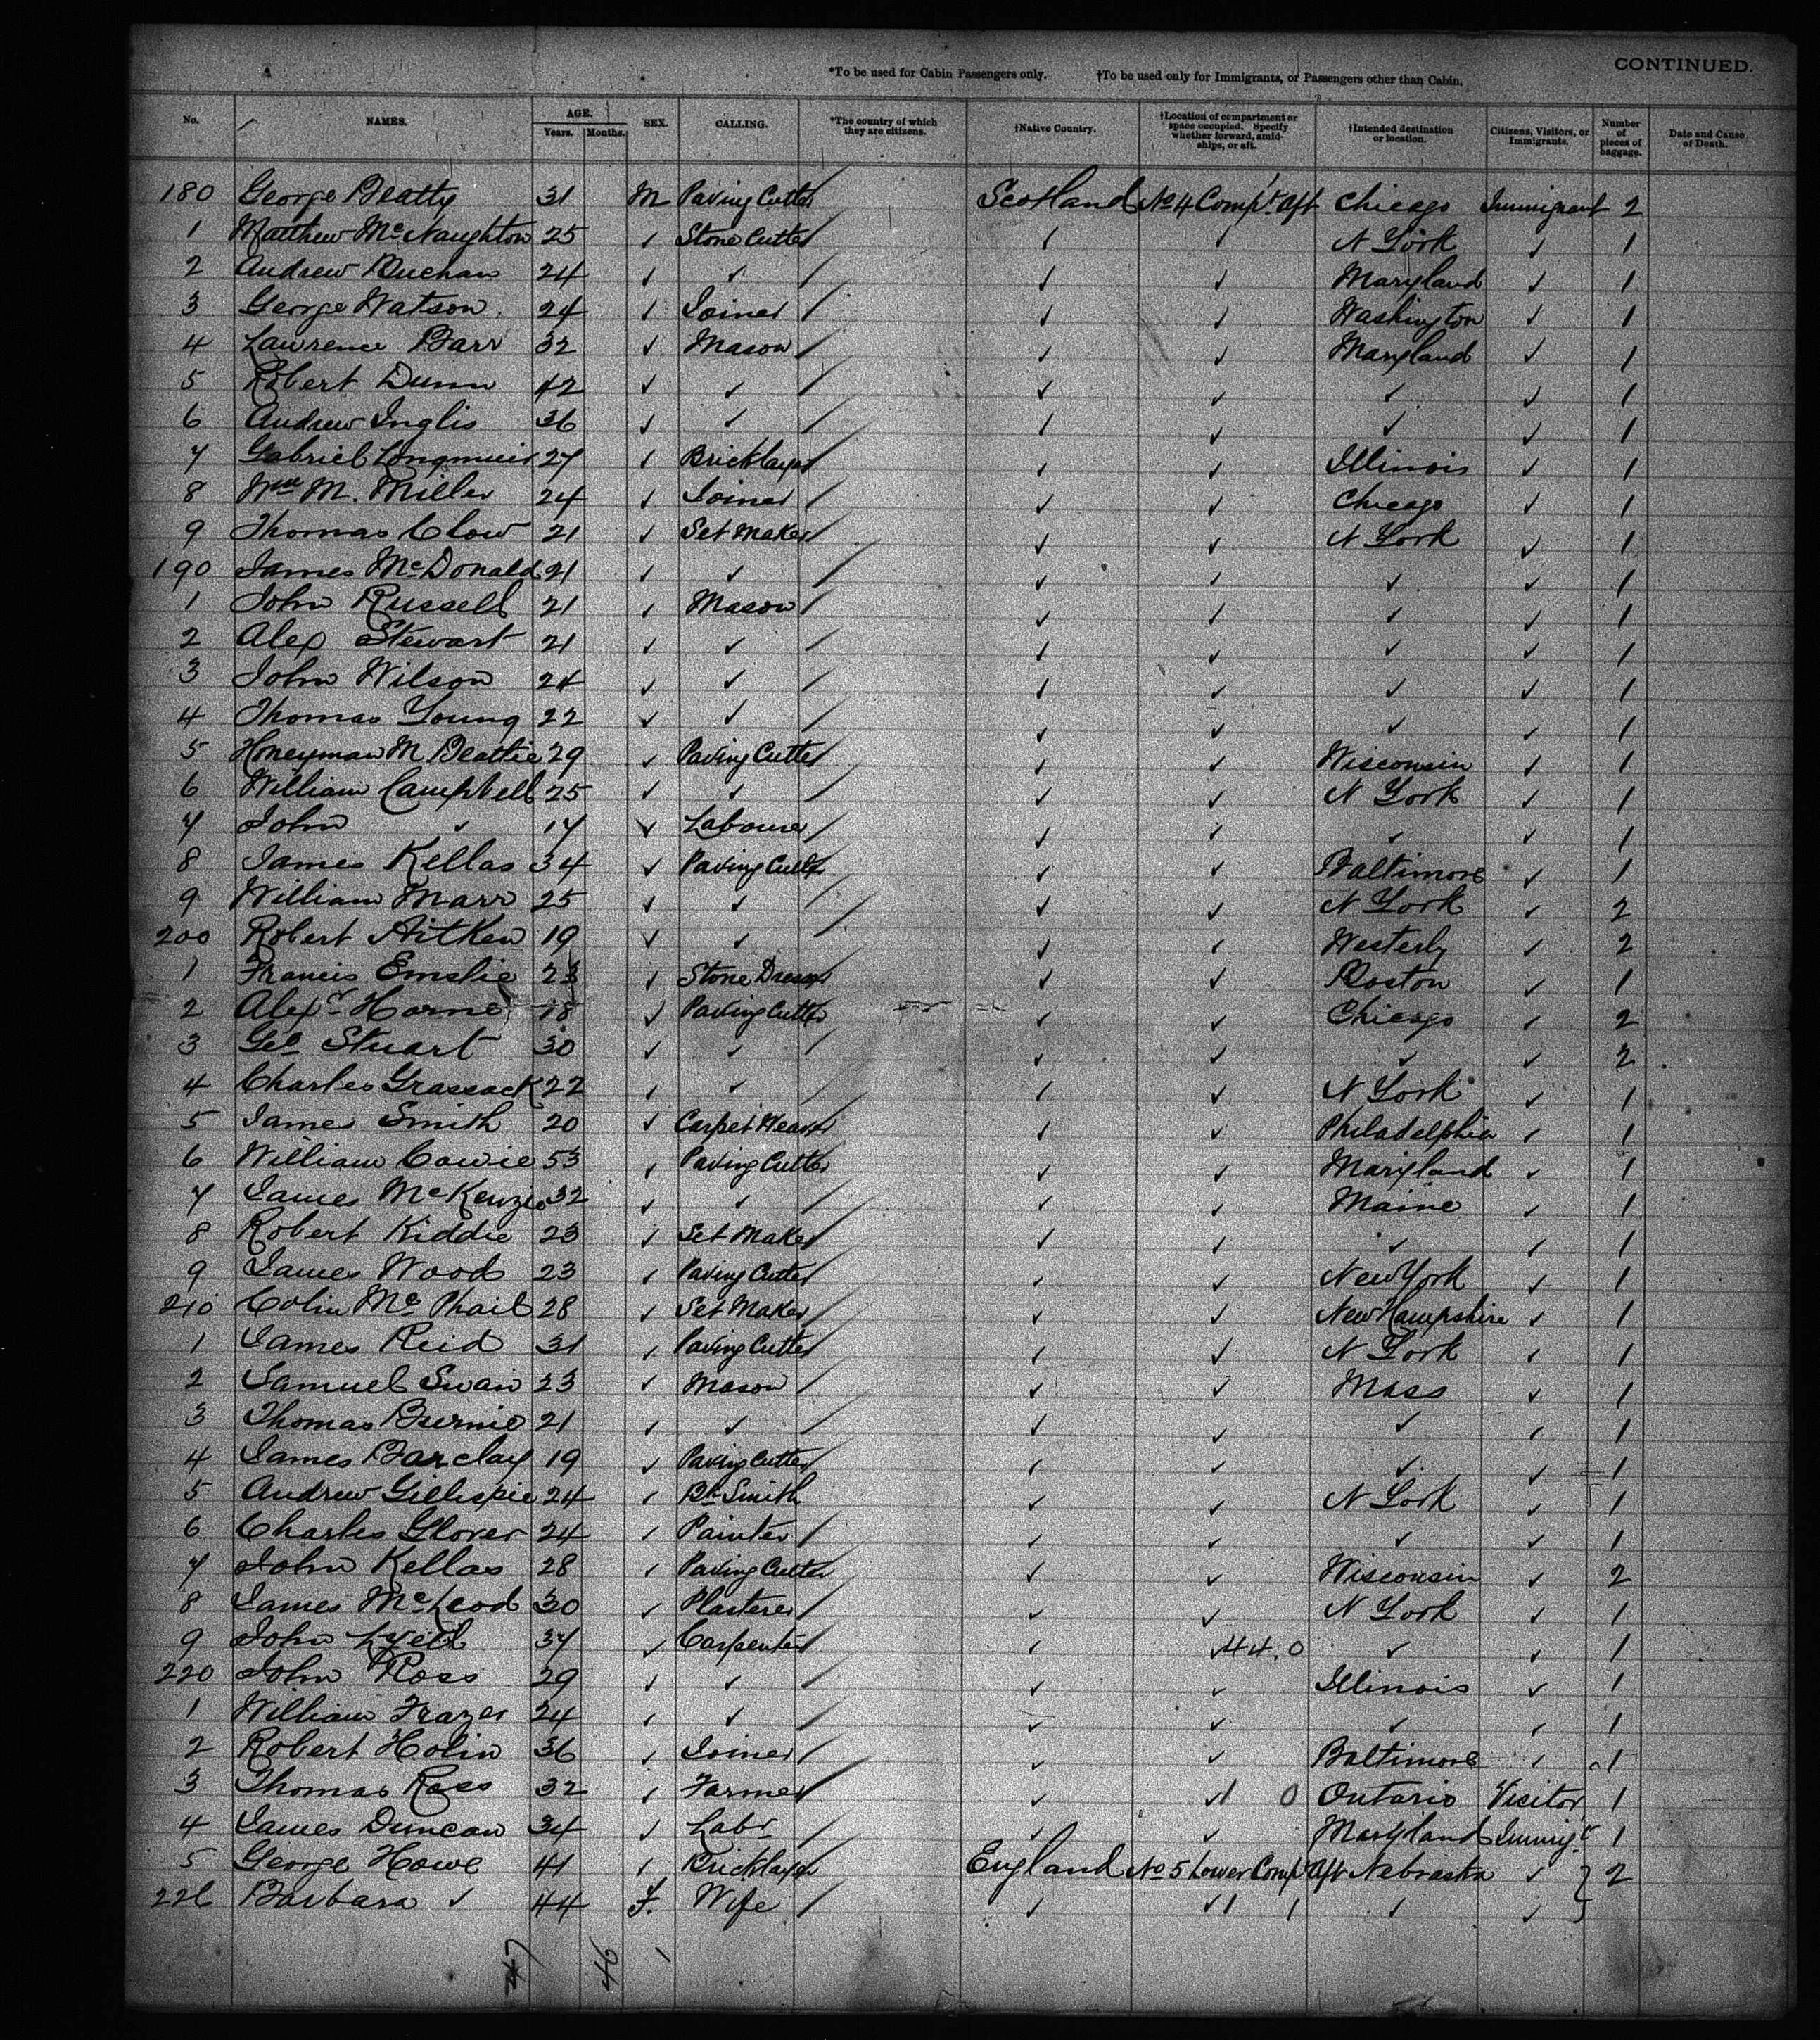 CONTINUED.
*To be used for Cabin Passengers only. †To be used only for Immigrants, or Passengers other than Cabin.
No. NAMES. AGE. Years. Months. SEX. CALLING. *The country of which they are citizens. †Native Country. †Location of compartment or space occupied. Specify whether forward, amidships, or aft. †Intended destination or location. Citizens, Visitors, or Immigrants. Number of pieces of baggage. Date and Cause of Death.
180 George Beatty 31 M Paving Cutter Scotland No 4 Comp't Aft Chicago Immigrant 2
1 Matthew McNaughton 25 ✓ Stone Cutter ✓ ✓ N York ✓ 1
2 Andrew Buchan 24 ✓ ✓ ✓ ✓ Maryland ✓ 1
3 George Watson 24 ✓ Joiner ✓ ✓ Washington ✓ 1
4 Lawrence Barr 32 ✓ Mason ✓ ✓ Maryland ✓ 1
5 Robert Dunn 42 ✓ ✓ ✓ ✓ ✓ ✓ 1
6 Andrew Inglis 36 ✓ ✓ ✓ ✓ ✓ ✓ 1
7 Gabriel Longmuir 27 ✓ Bricklayer ✓ ✓ Illinois ✓ 1
8 Wm M. Miller 24 ✓ Joiner ✓ ✓ Chicago ✓ 1
9 Thomas Clow 21 ✓ Set Maker ✓ ✓ N York ✓ 1
190 James McDonald 21 ✓ ✓ ✓ ✓ ✓ ✓ 1
1 John Russell 21 ✓ Mason ✓ ✓ ✓ ✓ 1
2 Alex Stewart 21 ✓ ✓ ✓ ✓ ✓ ✓ 1
3 John Wilson 24 ✓ ✓ ✓ ✓ ✓ ✓ 1
4 Thomas Young 22 ✓ ✓ ✓ ✓ ✓ ✓ 1
5 Honeyman M Beattie 29 ✓ Paving Cutter ✓ ✓ Wisconsin ✓ 1
6 William Campbell 25 ✓ ✓ ✓ ✓ N York ✓ 1
7 John ✓ 17 ✓ Labourer ✓ ✓ ✓ ✓ 1
8 James Kellas 34 ✓ Paving Cutter ✓ ✓ Baltimore ✓ 1
9 William Marr 25 ✓ ✓ ✓ ✓ N York ✓ 2
200 Robert Aitken 19 ✓ ✓ ✓ ✓ Westerly ✓ 2
1 Francis Emslie 23 ✓ Stone Dresser ✓ ✓ Boston ✓ 1
2 Alexr Horne 18 ✓ Paving Cutter ✓ ✓ Chicago ✓ 2
3 Geo Stuart 30 ✓ ✓ ✓ ✓ ✓ ✓ 2
4 Charles Grassack 22 ✓ ✓ ✓ ✓ N York ✓ 1
5 James Smith 20 ✓ Carpet Weaver ✓ ✓ Philadelphia ✓ 1
6 William Cowie 53 ✓ Paving Cutter ✓ ✓ Maryland ✓ 1
7 James McKenzie 32 ✓ ✓ ✓ ✓ Maine ✓ 1
8 Robert Kiddie 23 ✓ Set Maker ✓ ✓ ✓ ✓ 1
9 James Wood 23 ✓ Paving Cutter ✓ ✓ New York ✓ 1
210 Colin McPhail 28 ✓ Set Maker ✓ ✓ New Hampshire ✓ 1
1 James Reid 31 ✓ Paving Cutter ✓ ✓ N York ✓ 1
2 Samuel Swan 23 ✓ Mason ✓ ✓ Mass ✓ 1
3 Thomas Burnie 21 ✓ ✓ ✓ ✓ ✓ ✓ 1
4 James Barclay 19 ✓ Paving Cutter ✓ ✓ ✓ ✓ 1
5 Andrew Gillespie 24 ✓ Bk Smith ✓ ✓ N York ✓ 1
6 Charles Glover 24 ✓ Painter ✓ ✓ ✓ ✓ 1
7 John Kellas 28 ✓ Paving Cutter ✓ ✓ Wisconsin ✓ 2
8 James McLeod 30 ✓ Plasterer ✓ ✓ N York ✓ 1
9 John Lyell 37 ✓ Carpenter ✓ ✓ 44.0 ✓ ✓ 1
220 John Ross 29 ✓ ✓ ✓ ✓ Illinois ✓ 1
1 William Frazer 24 ✓ ✓ ✓ ✓ ✓ ✓ 1
2 Robert Holin 36 ✓ Joiner ✓ ✓ Baltimore ✓ 1
3 Thomas Ross 32 ✓ Farmer ✓ ✓ 1 0 Ontario Visitor 1
4 James Duncan 34 ✓ Labr ✓ ✓ Maryland Immigt 1
5 George Howe 41 ✓ Bricklayer England No 5 Lower Comp't Aft Nebraska ✓ 2
226 Barbara ✓ 44 F. Wife ✓ ✓ 1 1 ✓ ✓
47 46 1